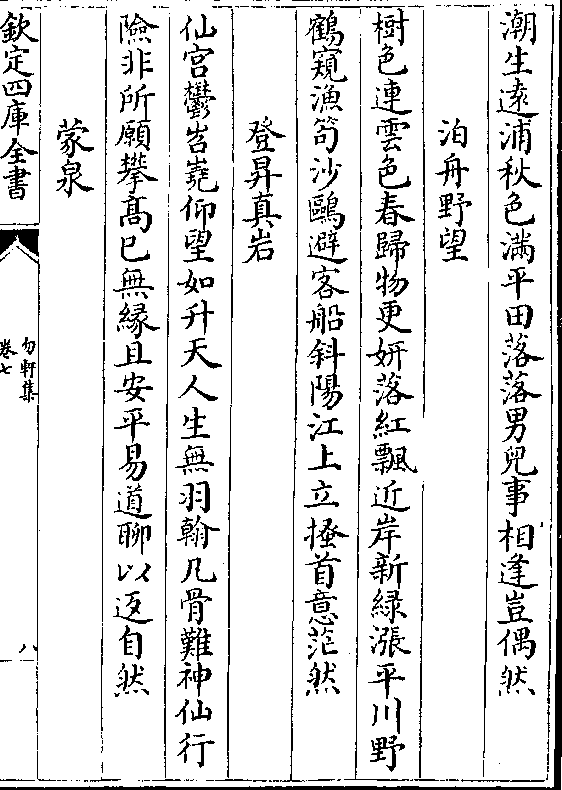 潮生遠浦秋色滿平田落落男兒事相逢豈偶然
泊舟野望
樹色連雲色春歸物更妍落紅飄近岸新緑漲平川野
鶴窺漁笱沙鷗避客船斜陽江上立搔首意茫然
登昇真岩
仙宫鬱岧嶤仰望如升天人生無羽翰凡骨難神仙行
險非所願攀髙已無縁且安平易道聊以返自然
蒙泉
欽定四庫全書
勿軒集
卷七
八